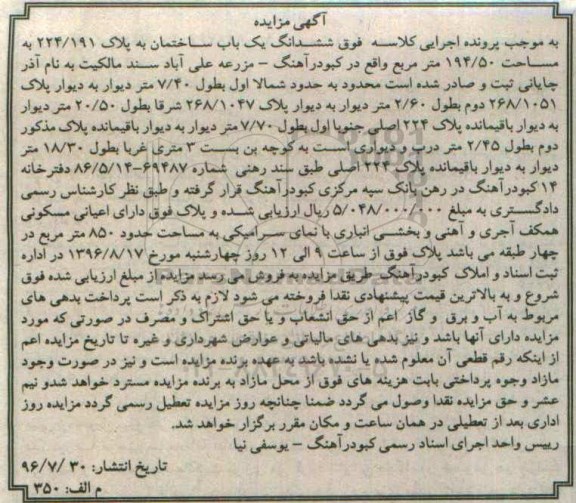 آگهی مزایده
به موجب پرونده اجرایی کلاسه فوق ششدانگ یک باب ساختمان به پلاک ۲۲۴/۱۹۱ به
مساحت ۱۹۴/۵۰ متر مربع واقع در کبودرآهنگ – مزرعه علی آباد سند مالکیت به نام آذر
چاپانی ثبت و صادر شده است محدود به حدود شمالا اول بطول ۷/۴۰ متر دیوار به دیوار پلاک
۲۶۸/۱۰۵۱ دوم بطول ۲/۶۰ متر دیوار به دیوار پلاک ۲۶۸/۱۰۴۷ شرقا بطول ۲۰/۵۰ متر دیوار
به دیوار باقیمانده پلاک ۲۲۴ اصلی جنوبا اول بطول ۷/۷۰ متر دیوار به دیوار باقیمانده پلاک مذکور
دوم بطول ۲/۴۵ متر درب و دیواری است به کوچه بن بست ۳ متری غربا بطول ۱۸/۳۰ متر
دیوار به دیوار باقیمانده پلاک ۲۲۴ اصلی طبق سند رهنی شماره ۶۹۴۸۷–۸۶/۵/۱۴ دفترخانه
۱۴ کبودرآهنگ در رهن بانک سپه مرکزی کبودرآهنگ قرار گرفته و طبق نظر کارشناس رسمی
دادگستری به مبلغ ۵/۰۴۸/۰۰۰/۰۰۰ ریال ارزیابی شده و پلاک فوق دارای اعیانی مسکونی
همکف آجری و آهنی و بخشی انباری با نمای سرامیکی به مساحت حدود ۸۵۰ متر مربع در
چهار طبقه می باشد پلاک فوق از ساعت ۹ الی ۱۲ روز چهارشنبه مورخ ۱۳۹۶/۸/۱۷ در اداره
ثبت اسناد و املاک کبودرآهنگ طریق مزایده به فروش می رسد مزایده از مبلغ ارزیابی شده فوق
شروع و به بالاترین قیمت پیشنهادی نقدا فروخته می شود لازم به ذکر است پرداخت بدهی های
مربوط به آب و برق و گاز اعم از حق انشعاب و یا حق اشتراک و مصرف در صورتی که مورد
مزایده دارای آنها باشد و نیز بدهی های مالیاتی و عوارض شهرداری و غیره تا تاریخ مزایده اعم
از اینکه رقم قطعی آن معلوم شده یا نشده باشد به عهده برنده مزایده است و نیز در صورت وجود
مازاد وجوه پرداختی بابت هزینه های فوق از محل مازاد به برنده مزایده مسترد خواهد شدو نیم
عشر و حق مزایده نقدا وصول می گردد ضمنا چنانچه روز مزایده تعطیل رسمی گردد مزایده روز
اداری بعد از تعطیلی در همان ساعت و مکان مقرر برگزار خواهد شد.
رییس واحد اجرای اسناد رسمی کبودرآهنگ – یوسفی نیا
تاریخ انتشار: ۳۰ /۹۶/۷
م الف: ۳۵۰